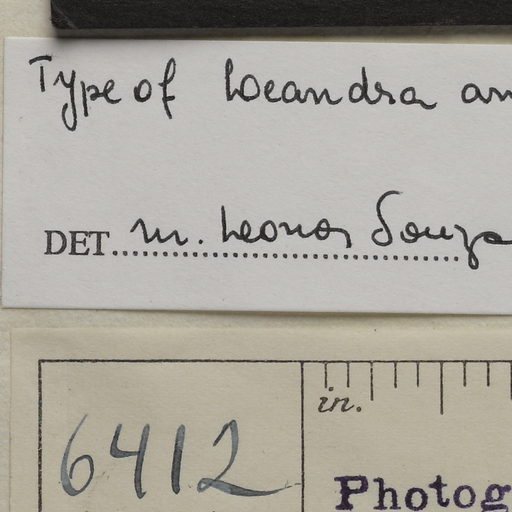 Type of Leandra am
DET. M. Leonor Souza
in.
6412
Photog